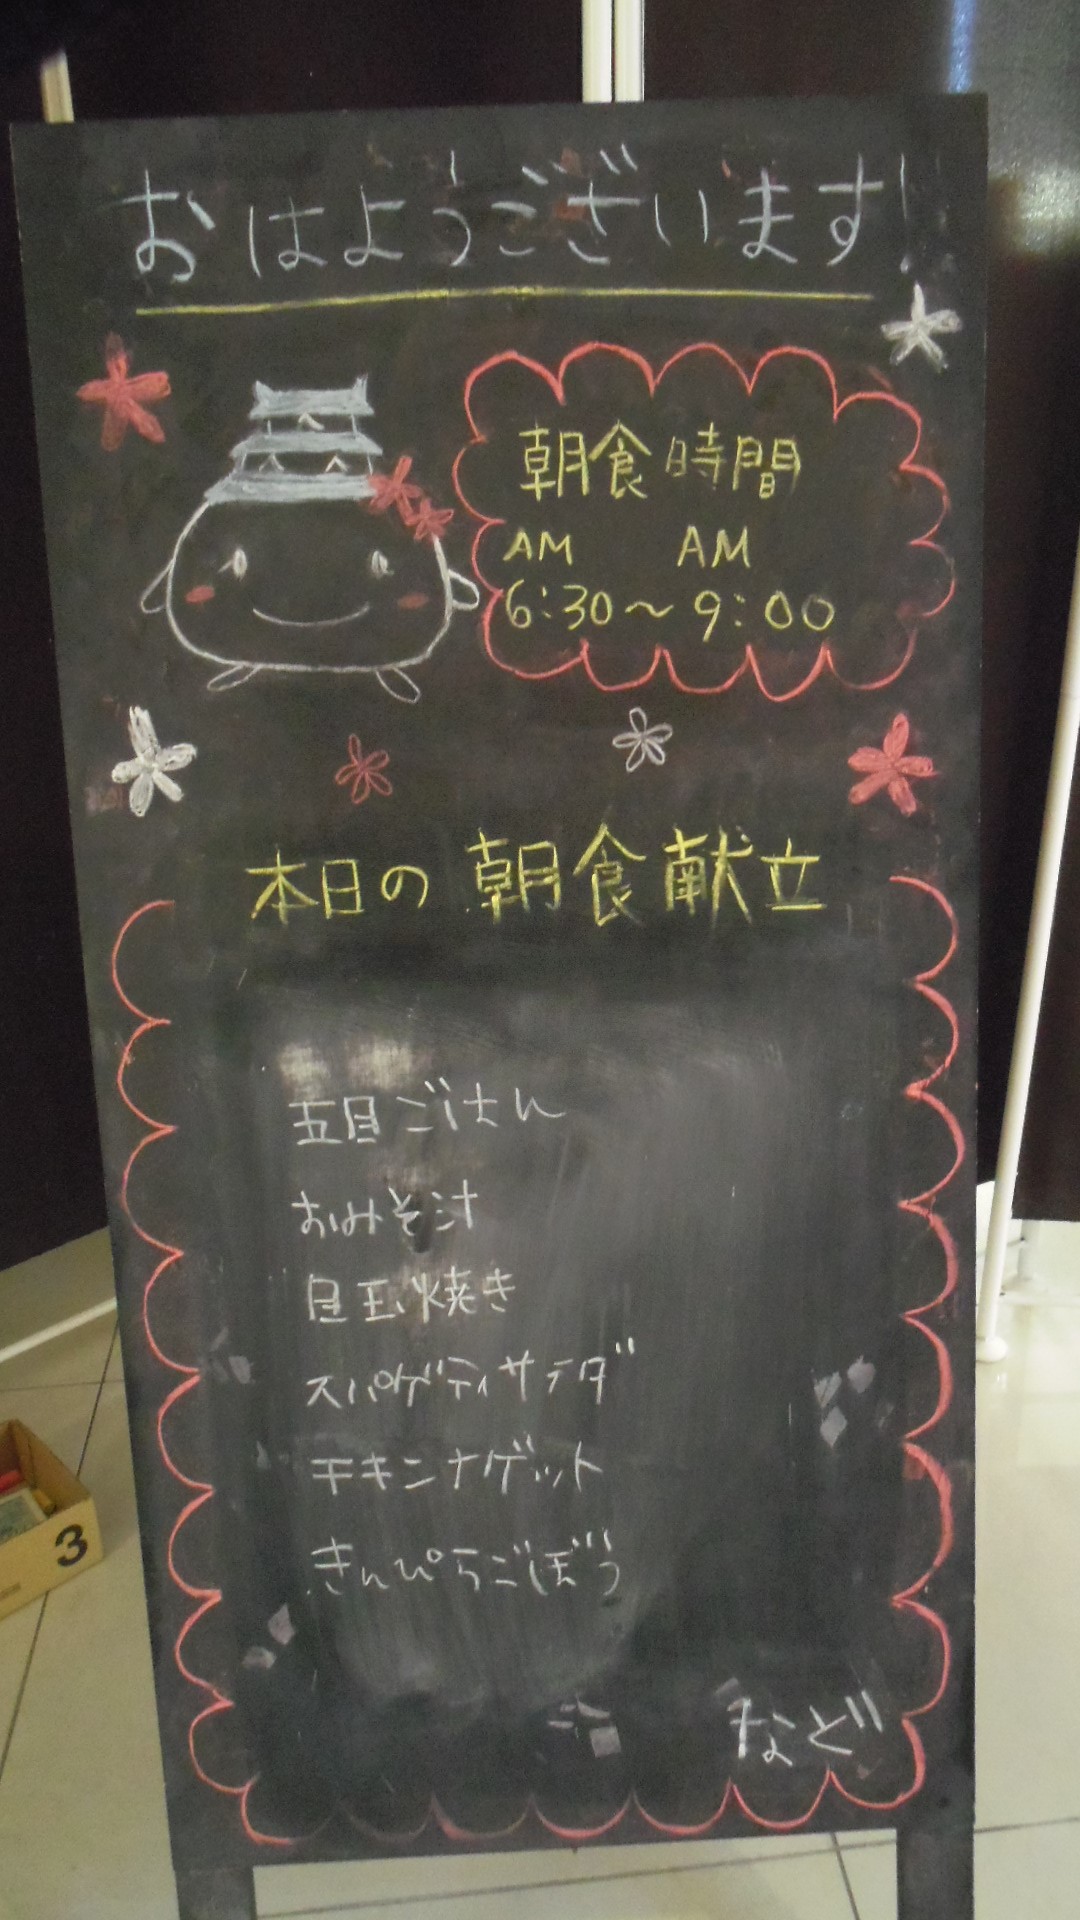 おはようございます!
朝食時間
AM AM
6:30〜9:00
本日の朝食献立
五目ごはん
おみそ汁
目玉焼き
スパゲティサラダ
チキンナゲット
きんぴらごぼう
など
3